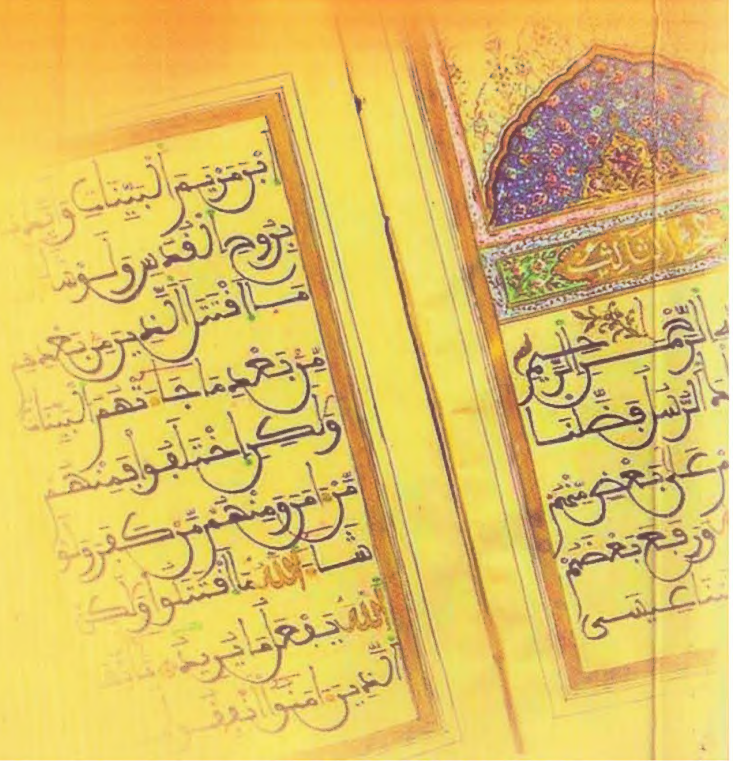 الثالث
الرَّحْمَٰنِ الرَّحِيمِ
الرُّسُلُ فَضَّلْنَا
عَلَىٰ بَعْضٍ مِّنْهُم
وَرَفَعَ بَعْضَهُمْ
عِيسَى
ابْنَ مَرْيَمَ الْبَيِّنَاتِ
بِرُوحِ الْقُدُسِ وَلَوْ شَاءَ
مَا اقْتَتَلَ الَّذِينَ مِن بَعْدِهِم
مِّن بَعْدِ مَا جَاءَتْهُمُ الْبَيِّنَاتُ
وَلَٰكِنِ اخْتَلَفُوا فَمِنْهُم
مَّنْ ءَامَنَ وَمِنْهُم مَّن كَفَرَ وَلَوْ
شَاءَ اللَّهُ مَا اقْتَتَلُوا وَلَٰكِنَّ
اللَّهَ يَفْعَلُ مَا يُرِيدُ
الَّذِينَ ءَامَنُوا أَنفِقُوا